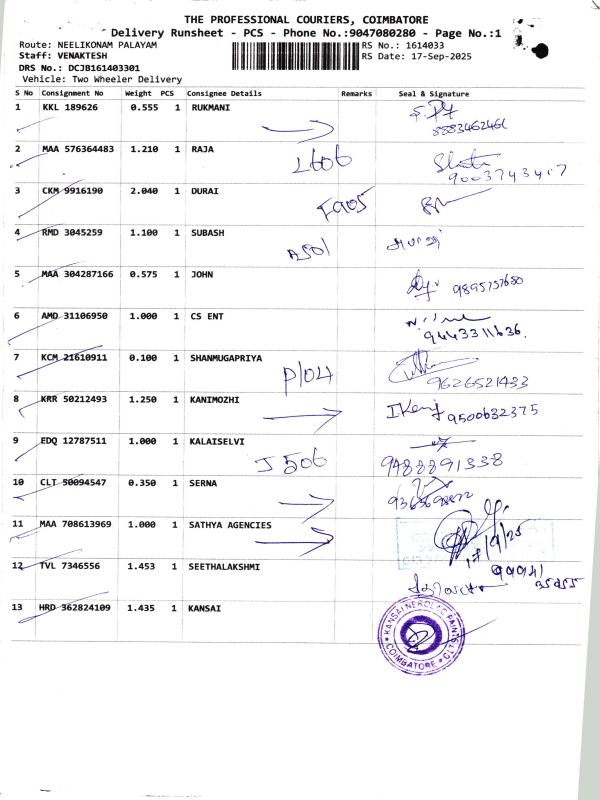 THE PROFESSIONAL COURIERS, COIMBATORE
Delivery Runsheet - PCS - Phone No.:9047080280 - Page No.:1
Route: NEELIKONAM PALAYAM
RS No.: 1614033
Staff: VENAKTESH
RS Date: 17-Sep-2025
DRS No.: DCJB161403301
Vehicle: Two Wheeler Delivery
S No Consignment No Weight PCS Consignee Details Remarks Seal & Signature
1 KKL 189626 0.555 1 RUKMANI
8883462461
2 MAA 576364483 1.210 1 RAJA L606
9003743417
3 CKM 9916190 2.040 1 DURAI F905
4 RMD 3045259 1.100 1 SUBASH A501
5 MAA 304287166 0.575 1 JOHN
9895757680
6 AMD 31106950 1.000 1 CS ENT
9443311636.
7 KCM 21610911 0.100 1 SHANMUGAPRIYA P104
9626521433
8 KRR 50212493 1.250 1 KANIMOZHI
9500632375
9 EDQ 12787511 1.000 1 KALAISELVI J506
9488891338
10 CLT 50094547 0.350 1 SERNA
11 MAA 708613969 1.000 1 SATHYA AGENCIES
17/9/25
12 TVL 7346556 1.453 1 SEETHALAKSHMI
13 HRD 362824109 1.435 1 KANSAI
KANSAI NEROLAC PAINTS
COIMBATORE